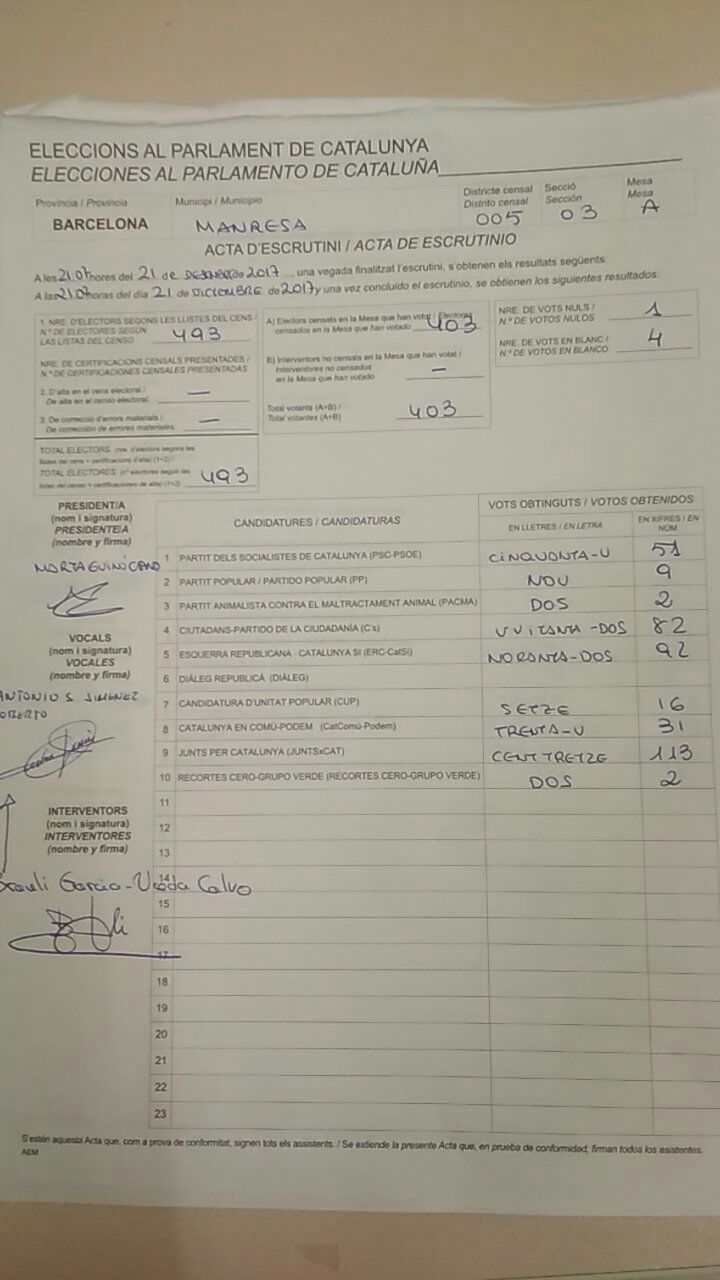 ELECCIONS AL PARLAMENT DE CATALUNYA
ELECCIONES AL PARLAMENTO DE CATALUÑA
Província / Provincia
Municipi / Municipio
Districte censal
Distrito censal
Secció
Sección
Mesa
Mesa
BARCELONA
MANRESA
005
03
A
ACTA D'ESCRUTINI / ACTA DE ESCRUTINIO
A les 21.07 hores del 21 de 2017 , una vegada finalitzat l'escrutini, s'obtenen els resultats següents:
A las horas del día 21 de DICIEMBRE de 2017 y una vez concluido el escrutinio, se obtienen los siguientes resultados:
1. NRE. D'ELECTORS SEGONS LES LLISTES DEL CENS /
N.º DE ELECTORES SEGÚN
LAS LISTAS DEL CENSO
493
NRE. DE CERTIFICACIONS CENSALS PRESENTADES /
N.º DE CERTIFICACIONES CENSALES PRESENTADAS
2. D'alta en el cens electoral /
De alta en el censo electoral:
—
3. De correcció d'errors materials /
De corrección de errores materiales
—
TOTAL ELECTORS: (nre. d'electors segons les
llistes del cens + certificacions d'alta) (1+2) /
TOTAL ELECTORES: (nº electores según las
listas del censo + certificaciones de alta) (1+2)
493
A) Electors censats en la Mesa que han votat / Electores
censados en la Mesa que han votado
403
B) Interventors no censats en la Mesa que han votat /
Interventores no censados
en la Mesa que han votado
—
Total votants (A+B) /
Total votantes (A+B)
403
NRE. DE VOTS NULS /
N.º DE VOTOS NULOS
1
NRE. DE VOTS EN BLANC /
N.º DE VOTOS EN BLANCO
4
PRESIDENT/A
(nom i signatura)
PRESIDENTE/A
(nombre y firma)
VOCALS
(nom i signatura)
VOCALES
(nombre y firma)
ANTONIO S. JIMENEZ
INTERVENTORS
(nom i signatura)
INTERVENTORES
(nombre y firma)
CANDIDATURES / CANDIDATURAS
VOTS OBTINGUTS / VOTOS OBTENIDOS
EN LLETRES / EN LETRA
EN XIFRES / EN
NÚM.
1 PARTIT DELS SOCIALISTES DE CATALUNYA (PSC-PSOE) CINQUANTA-U 51
2 PARTIT POPULAR / PARTIDO POPULAR (PP) NOU 9
3 PARTIT ANIMALISTA CONTRA EL MALTRACTAMENT ANIMAL (PACMA) DOS 2
4 CIUTADANS-PARTIDO DE LA CIUDADANÍA (C's) VUITANTA-DOS 82
5 ESQUERRA REPUBLICANA - CATALUNYA SÍ (ERC-CatSí) NORANTA-DOS 92
6 DIÀLEG REPUBLICÀ (DIÀLEG)
7 CANDIDATURA D'UNITAT POPULAR (CUP) SETZE 16
8 CATALUNYA EN COMÚ-PODEM (CatComú-Podem) TRENTA-U 31
9 JUNTS PER CATALUNYA (JUNTSxCAT) CENT TRETZE 113
10 RECORTES CERO-GRUPO VERDE (RECORTES CERO-GRUPO VERDE) DOS 2
11
12
13
14
15
16
17
18
19
20
21
22
23
S'estén aquesta Acta que, com a prova de conformitat, signen tots els assistents. / Se extiende la presente Acta que, en prueba de conformidad, firman todos los asistentes.
AEM